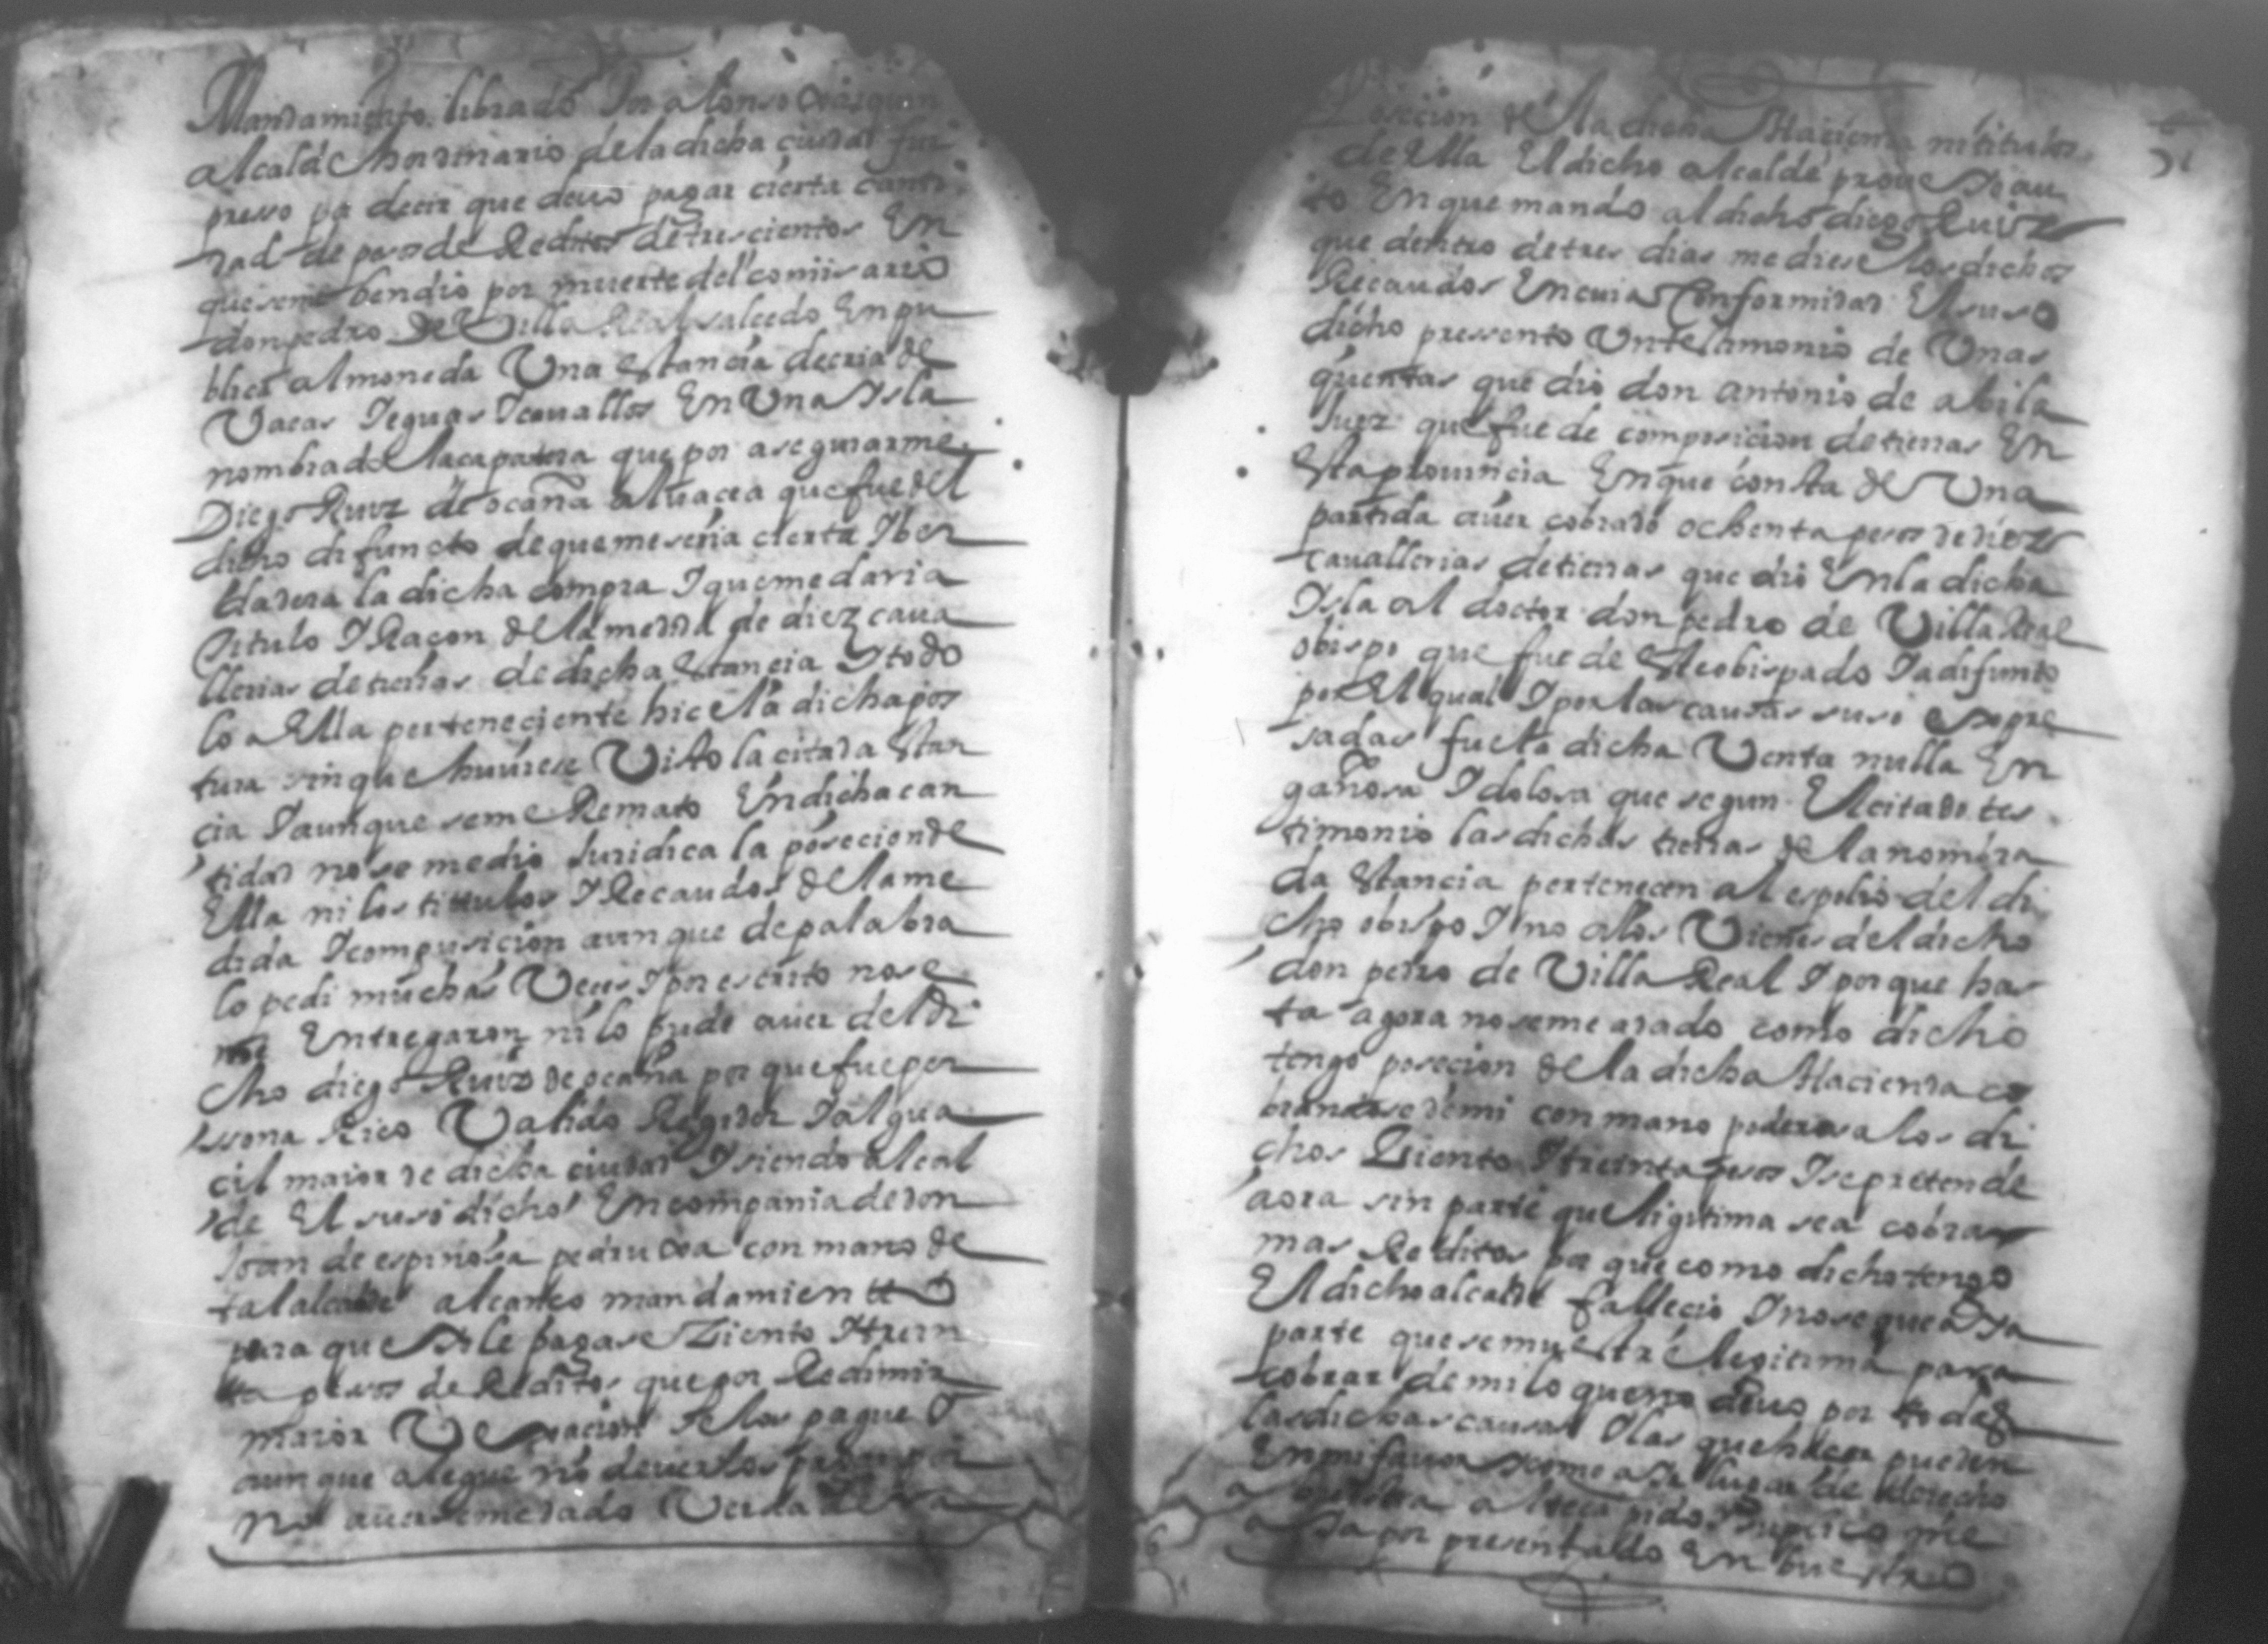 Mandamiento librado Por alonso
alcalde hordinario de la dicha ciudad fui
presso pa decir que deuo pagar cierta canti
dad de pesos de Reditos de trescientos En
que se me bendio por muerte del comissario
don pedro de Villa Real salcedo En pu
blica almoneda Una Estancia de cria de
Vacas Yeguas Y cauallos En Una Ysla
nombrada que por asegurarme
Diego Ruiz de ocaña aluacea que fue del
dicho difuncto de que me seria cierta Y ber
dadera la dicha compra Y que me daria
titulo Y Raçon de la medida de diez caua
llerias de tierras de dicha Estancia Y todo
lo a Ella perteneciente hice la dicha pos
tura sin que huuiese Visto la citada Stan
cia Y aunque se me Remato En dicha can
tidad no se me dio Juridica la posecion de
Ella ni los titulos Y Recaudos de la me
dida Y composicion aunque de palabra
lo pedi muchas Veces Y por escrito no se
me Entregaron ni lo pude auer del di
cho diego Ruiz de ocaña por que fue per
ssona Rico Valido Regidor Y algua
cil maior de dicha ciudad Y siendo alcal
de El susodicho En compania de don
Joan de espinosa con mano de
tal alcalde alcanço mandamiento
para que se le pagase Ziento Y trein
ta pesos de Reditos que por Redimir
maior Vexacion se los pague Y
aunque alegue no deuerlos
no auerseme dado Verdadera
Posecion de la dicha Hazienda ni titulos
de Ella El dicho alcalde proueyo au
to En que mando al dicho diego Ruiz
que dentro de tres dias me diese los dichos
Recaudos En cuia Conformidad El suso
dicho pressento Un testamonio de Unas
quentas que dio don antonio de abila
Juez que fue de composicion de tierras En
Esta prouincia En que consta de Una
partida auer cobrado ochenta pesos de diez
cauallerias de tierras que dio En la dicha
Isla al doctor don pedro de Villa Real
obispo que fue de Este obispado Ya difunto
por El qual Y por las causas suso Expre
sadas fue la dicha Venta nulla En
gañosa Y dolosa que segun El citado tes
timonio las dichas tierras de la nombra
da Estancia pertenecen al espolio del di
cho obispo Y no a los Vienes del dicho
don pedro de Villa Real Y porque has
ta agora no se me a dado como dicho
tengo posecion de la dicha Hacienda co
brandose de mi con mano poderosa los di
chos Ziento Y treinta pesos Y se pretende
aora sin parte que ligitima sea cobrar
mas Reditos por que como dicho tengo
El dicho alcalde fallecio Y no se que aya
parte que se muestre legitima para
cobrar de mi lo que no deuo por todas
las dichas causas Y las que hacer pueden
En mi fauor Y como a Ya lugar de derecho
a Vuestra alteça pido Y suplico me
aya por presentado En buestro